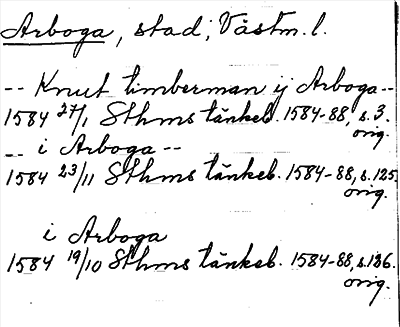 Arboga, stad, Västm. l.
-- Knut timberman ij Arboga --
1584 27/1 Sthms tänkeb. 1584-88, s. 3.
orig.
-- i Arboga --
1584 23/11 Sthms tänkeb. 1584-88, s. 125.
orig.
i Arboga
1584 19/10 Sthms tänkeb. 1584-88, s. 136.
orig.